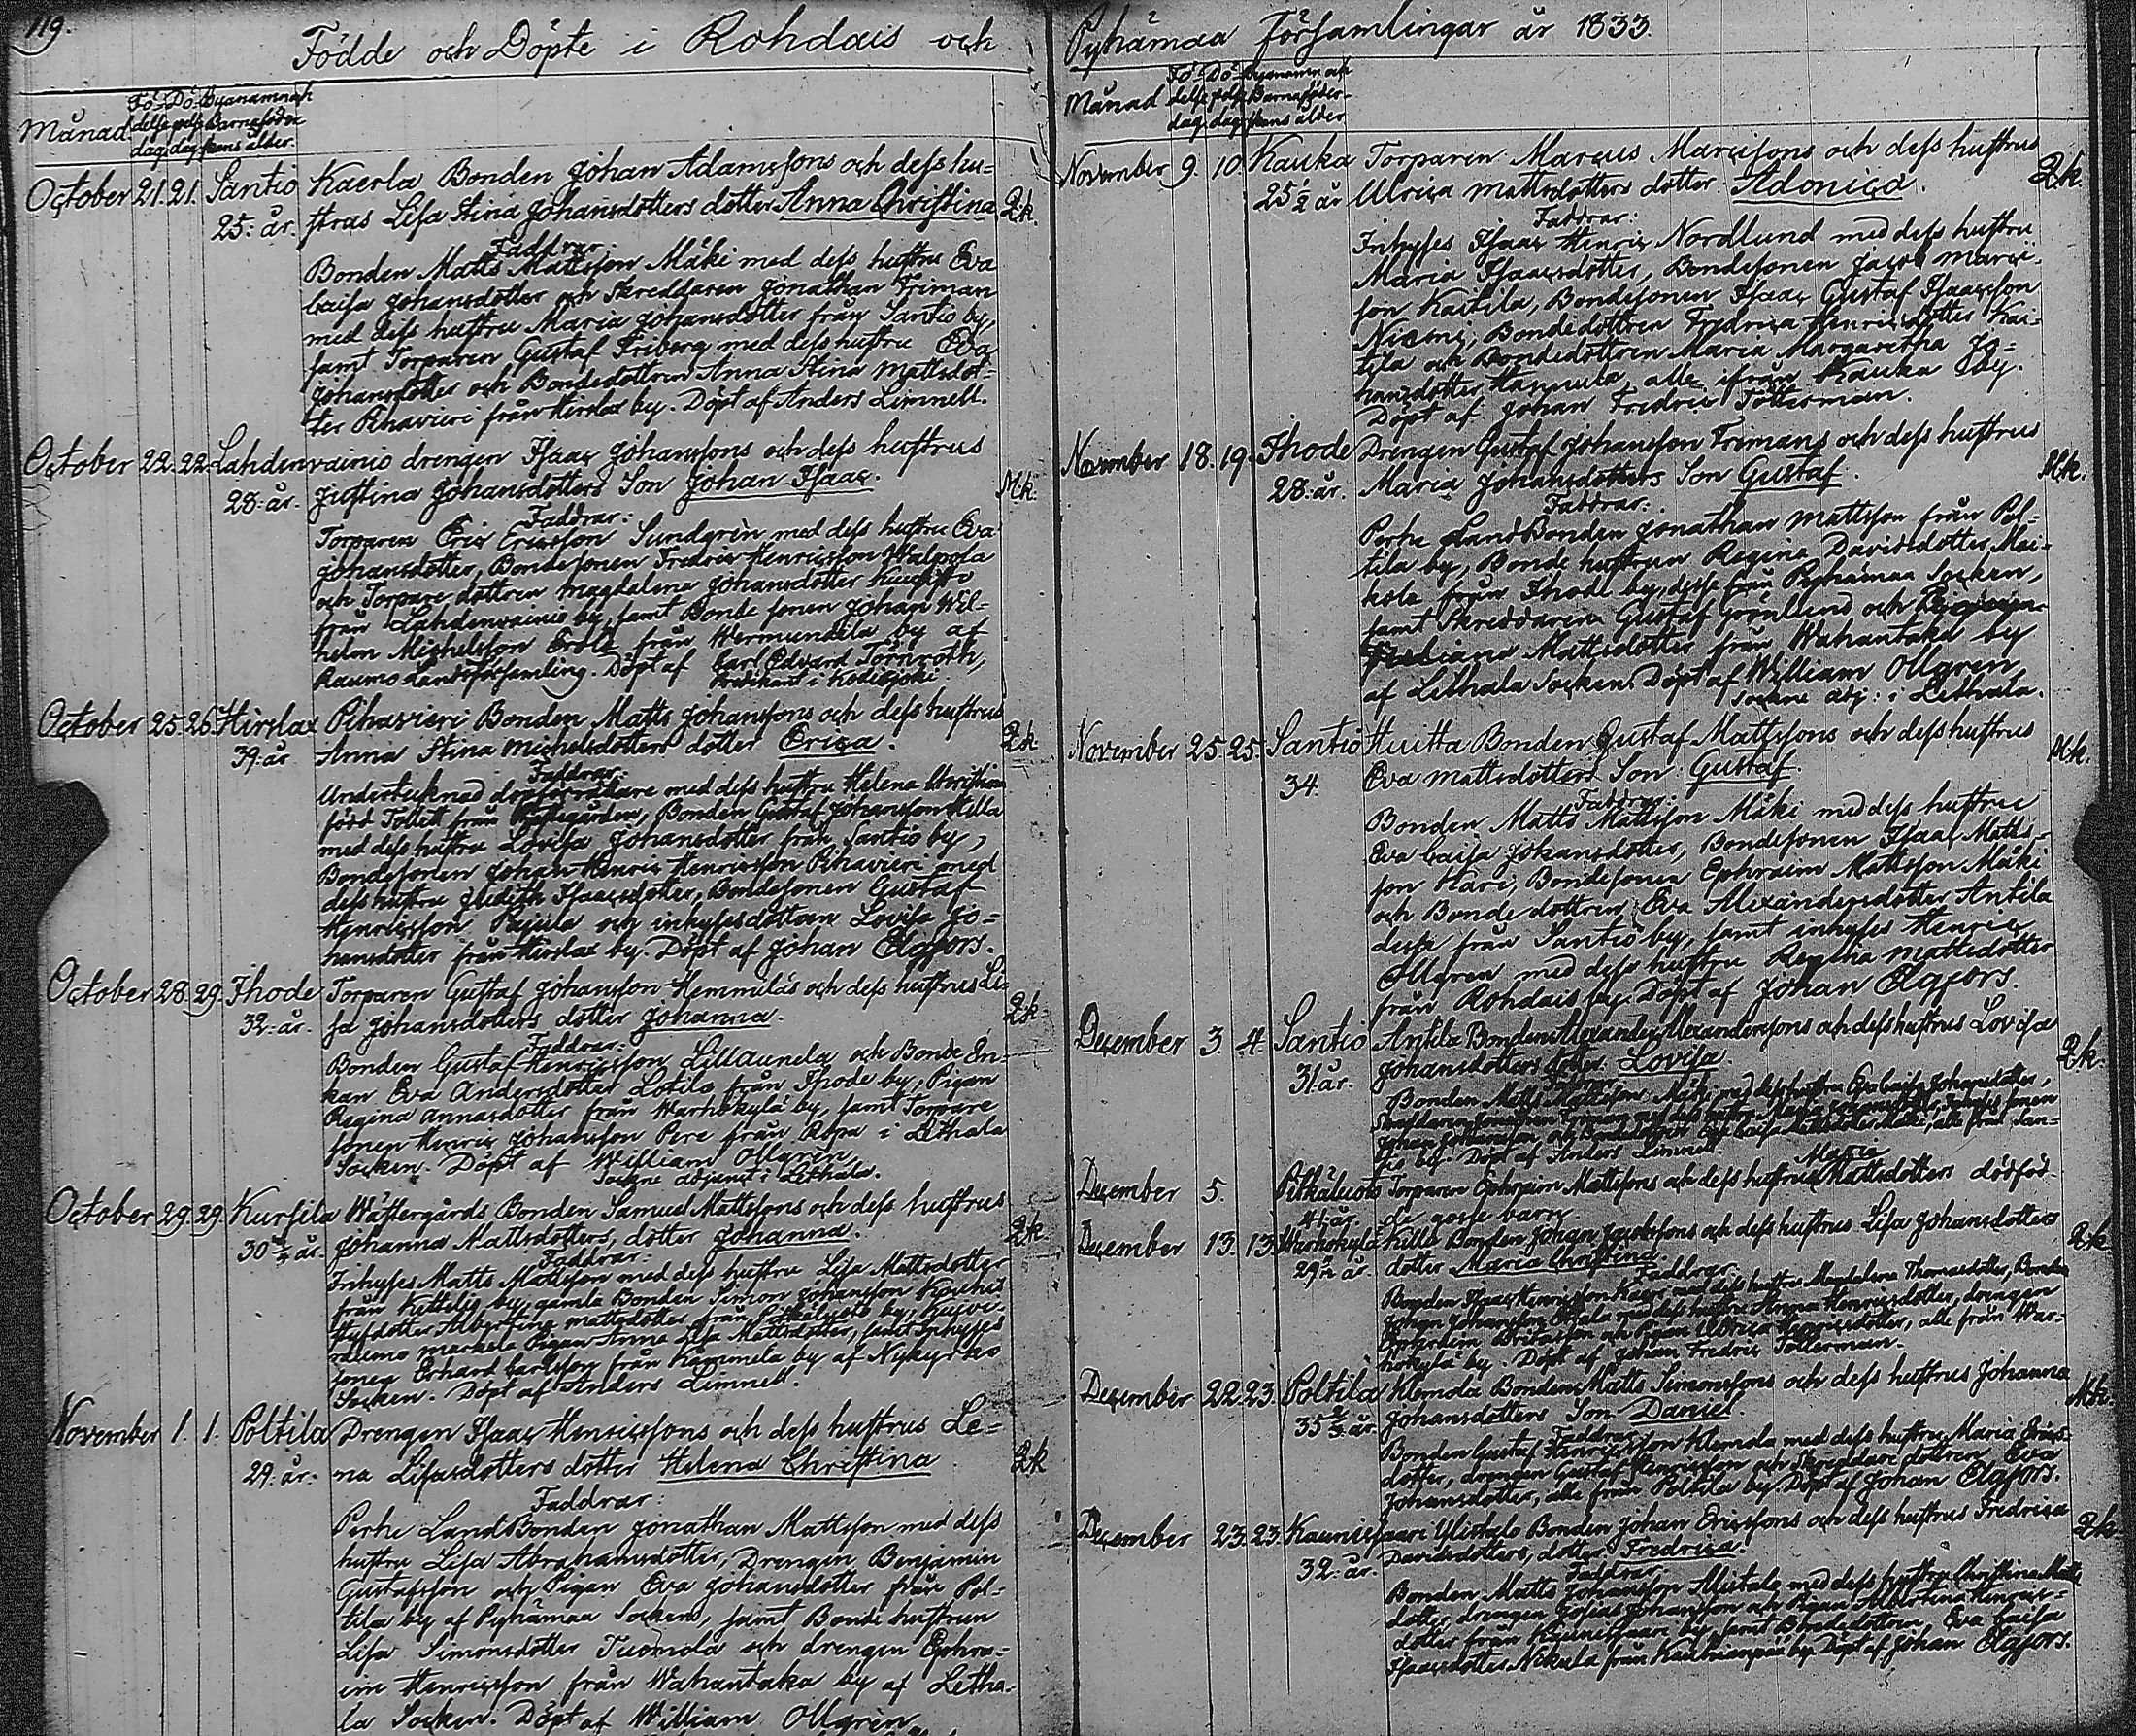 119.
Födde och Döpte i Rohdais och
Månad Fö-delse dag. Dö-pelse dag. Byanamn och Barnaföderskans ålder.
October 21. 21. Santio Kaerla Bonden Johan Adamssons och dess hu-
25: år. strus Lisa Stina Johansdotters dotter Anna Christina Qk.
Faddrar:
Bonden Matts Mattsson Mäki med dess hustru Eva
Caisa Johansdotter och Skreddaren Jonathan Friman
med dess hustru Maria Johansdotter från Santio by,
samt Torparen Gustaf Friberg med dess hustru Eva
Johansdotter och Bondedottren Anna Stina Mattsdot-
ter Pihavieri från Hirslax by. Döpt af Anders Limnell.
October 22. 22. Lahdenvainio drengen Isaac Johanssons och dess hustrus
28: år. Justina Johansdotters Son Johan Isaac. Mk.
Faddrar:
Torparen Eric Ericsson Sundgrèn med dess hustru Eva
Johansdotter, Bondesonen Fredric Henricsson Walpola
och Torpare dottren Magdalena Johansdotter
från Lahdenvainio by, samt Bonde sonen Johan Wil-
helm Michelsson från Wermundila by af
Raumo Landsförsamling. Döpt af Carl Edvard Törnroth,
Predikant i Kodisjoki.
October 25. 26. Hirslax Pihavieri Bonden Matts Johanssons och dess hustrus
39: år Anna Stina Michelsdotters dotter Erica. Qk
Faddrar:
Undertecknad dopförrättare med dess hustru Helena Christina
född Tollet från Prestegården, Bonden Gustaf Johansson Hilla
med dess hustru Lovisa Johansdotter från Santio by,
Bondesonen Johan Henric Henricsson Pihavieri med
dess hustru Judith Isaacsdotter, Bondesonen Gustaf
Henricsson Pajula och inhysesdottren Lovisa Jo-
hansdotter från Hirslax by. Döpt af Johan Elgfors.
October 28. 29. Ihode Torparen Gustaf Johansson Hemmiläs och dess hustrus Li-
32: år. sa Johansdotters dotter Johanna. Qk
Faddrar:
Bonden Gustaf Henricsson Lillaunela och Bonde En-
kan Eva Andersdotter Lotila från Ihode by, Pigan
Regina Annasdotter från Warhokylä by, samt Torpare
sonen Henric Johansson Pere från i Lethala
Socken. Döpt af William Ollgrèn,
Sockne adjunct i Lethala.
October 29. 29. Kursila Wästergårds Bonden Samuel Mattssons och dess hustrus
30 år. Johanna Mattsdotters, dotter Johanna. Qk
Faddrar:
Inhyses Matts Mattsson med dess hustru Lisa Mattsdotter
från by, gamla Bonden Simon Johansson
dotter Albertina Mattsdotter från Pitkäluoto by,
Pigan Anna Lisa Mattsdotter, samt Inhyses
sonen Erhard Carlsson från Kammela by af Nykyrko
Socken. Döpt af Anders Limnell.
November 1. 1. Poltila Drengen Isaac Henricssons och dess hustrus Le-
29: år. na Lisasdotters dotter Helena Christina Qk
Faddrar:
Perhe LandBonden Jonathan Mattsson med dess
hustru Lisa Abrahamsdotter, Drengen Benjamin
Gustafsson och Pigan Eva Johansdotter från Pol-
tila by af Pyhämaa Sockens, samt Bonde hustrun
Lisa Simonsdotter Tuomola och drengen Ephra-
im Henricsson från Wahantaka by af Letha-
la Socken. Döpt af William Ollgrèn
Pyhämaa Församlingar år 1833.
Månad Fö-delse dag. Dö-pelse dag. Byanamn och Barnaföder-skans ålder
November 9. 10. Kauka Torparen Marcus Marcissons och dess hustrus
25 1/2 år Ulrica Mattsdotters dotter Adonica. Qk.
Faddrar:
Inhyses Isaac Henric Nordlund med dess hustru
Maria Isaacsdotter, Bondesonen Jacob Marci-
son Kaitila, Bondesonen Isaac Gustaf Isaacsson
Niemi, Bondedottren Fredrica Henricsdotter Kai-
tila och Bondedottren Maria Margaretha Jo-
hansdotter Hannula, alle ifrån Kauka by.
Döpt af Johan Fredric Tötterman.
November 18. 19. Ihode Drengen Gustaf Johansson Frimans och dess hustrus
28: år. Maria Johansdotters Son Gustaf. Mk.
Faddrar:
Perhe LandBonden Jonathan Mattsson från Pol-
tila by, Bonde hustrun Regina Davidsdotter Mai-
kola från Ihode by, desse från Pyhämaa Socken,
samt Skreddaren Gustaf Grönlund och
Mattsdotter från Wahantaka by
af Lethala Socken. Döpt af William Ollgren,
Sockne adj: i Lethala.
November 25. 25. Santio Huitta Bonden Gustaf Mattssons och dess hustrus
34. Eva Mattsdotters Son Gustaf. Mk.
Faddrar:
Bonden Matts Mattsson Mäki med dess hustru
Eva Caisa Johansdotter, Bondesonen Isaac Matts-
son Hari, Bondesonen Ephraim Mattsson Mäki
och Bonde dottren Eva Alexandersdotter Antila
desse från Santio by, samt inhyses Henric
Ollgren med dess hustru Regina Mattsdotter
från Rohdais by. Döpt af Johan Elgfors.
December 3. 4. Santio Antila Bonden Alexander Alexanderssons och dess hustrus Lovisa
31 år. Johansdotters dotter Lovisa. Qk.
Faddrar:
Bonden Matts Mattsson Mäki med dess hustru Eva Caisa Johansdotter,
Skreddaren Jonathan Friman med dess hustru Maria Johansdotter, sonen
Johan Johansson och Bondedottren Caisa Mattsdotter Mäki, alle från San-
tio by. Döpt af Anders Limnell.
December 5. Pitkäluoto Torparen Ephraim Mattssons och dess hustrus Maria Mattsdotters dödföd-
41: år de gosse barn
December 13. 13. Warhokylä Hilla Bonden Johan Jacobssons och dess hustrus Lisa Johansdotters
29 1/2 år. dotter Maria Christina. Qk
Faddrar:
Bonden Isaac Henricsson med dess hustru Magdalena Thomasdotter, Bonden
Johan Johansson med dess hustru Anna Henricsdotter, drengen
och Pigan Ulrica Henricsdotter, alle från War-
hokylä by. Döpt af Johan Fredric Tötterman.
December 22. 23. Poltila Klemola Bonden Matts Simonssons och dess hustrus Johanna
35 år. Johansdotters Son Daniel. Mk.
Faddrar:
Bonden Gustaf Henricsson Klemola med dess hustru Maria Erics-
dotter, drengen Gustaf Henricsson och Skreddare dottren Eva
Johansdotter, alle från Poltila by. Döpt af Johan Elgfors.
December 23. 23. Kaunissaari Ylistalo Bonden Johan Ericssons och dess hustrus Fredrica
32: år. Davidsdotters, dotter Fredrica. Qk
Faddrar:
Bonden Matts Johansson med dess hustru Christina Matts
dotter, drengen Josias Johansson och Pigan Albertina Henrics-
dotter från Kaunissaari by, samt Bondedottren Eva Caisa
Isaacsdotter Nikula från by. Döpt af Johan Elgfors.